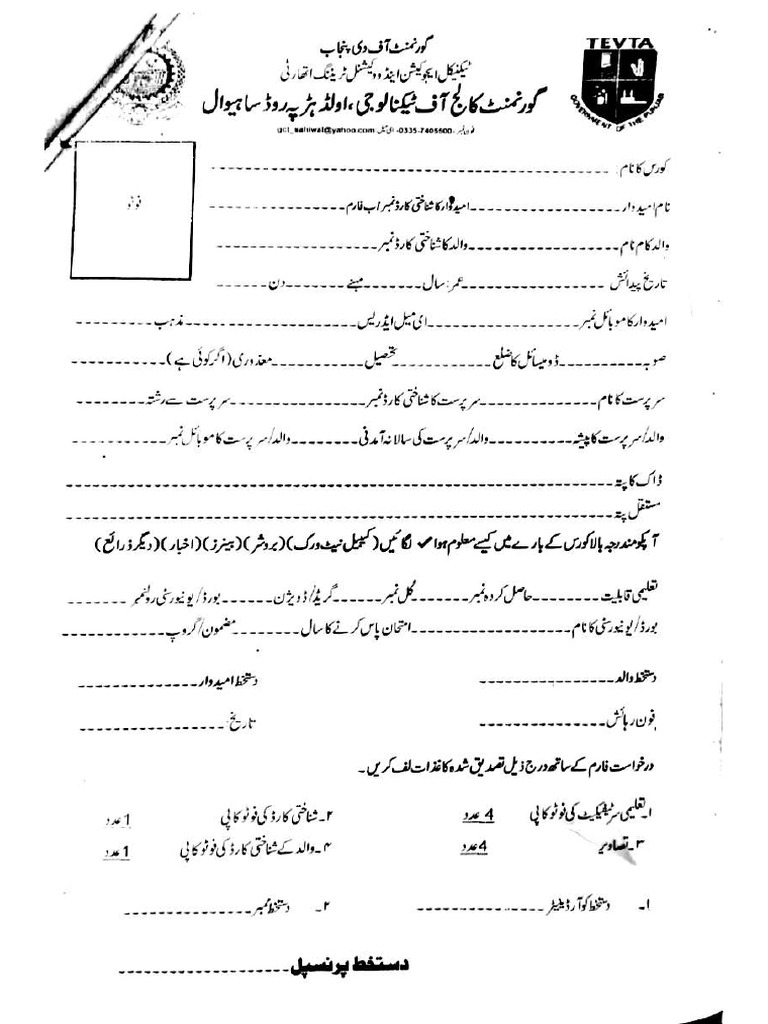 گورنمنٹ آف دی پنجاب
ٹیکنیکل ایجوکیشن اینڈ ووکیشنل ٹریننگ اتھارٹی
گورنمنٹ کالج آف ٹیکنالوجی، اولڈ ہڑپہ روڈ ساہیوال
فون نمبر 0335-7405600- ای میل gct_sahiwal@yahoo.com
TEVTA
GOVERNMENT OF THE PUNJAB
فوٹو
کورس کا نام:
نام امیدوار امیدوار کا شناختی کارڈ نمبر / ب فارم
والد کا م نام والد کا شناختی کارڈ نمبر
تاریخ پیدائش عمر: سال مہینے دن
امیدوار کا موبائل نمبر ای میل ایڈریس مذہب
صوبہ ڈومیسائل کا ضلع تحصیل معذوری (اگر کوئی ہے)
سرپرست کا نام سرپرست کا شناختی کارڈ نمبر سرپرست سے رشتہ
والد/سرپرست کا پیشہ والد/سرپرست کی سالانہ آمدنی والد/سرپرست کا موبائل نمبر
ڈاک کا پتہ
مستقل پتہ
آپکو مندرجہ بالا کورس کے بارے میں کیسے معلوم ہوا ✓ لگائیں (کیبل نیٹ ورک) (بروشر) (بینرز) (اخبار) (دیگر ذرائع)
تعلیمی قابلیت حاصل کردہ نمبر کل نمبر گریڈ/ڈویژن بورڈ/یونیورسٹی رولنمبر
بورڈ/یونیورسٹی کا نام امتحان پاس کرنے کا سال مضمون/گروپ
دستخط والد دستخط امیدوار
فون رہائش تاریخ:
درخواست فارم کے ساتھ درج ذیل تصدیق شدہ کاغذات لف کریں۔
۱۔ تعلیمی سرٹیفیکیٹ کی فوٹو کاپی 4 عدد ۲۔ شناختی کارڈ کی فوٹو کاپی 1 عدد
۳۔ تصاویر 4 عدد ۴۔ والد کے شناختی کارڈ کی فوٹو کاپی 1 عدد
۱۔ دستخط کوآرڈینیٹر ۲۔ دستخط ممبر
دستخط پرنسپل